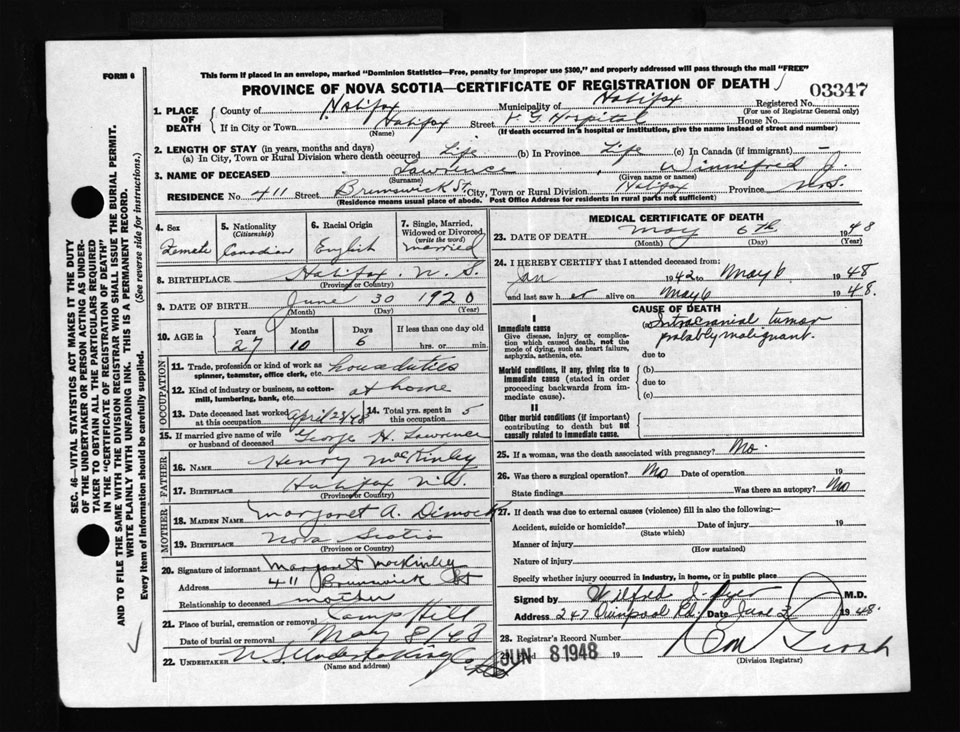 FORM 6
This form if placed in an envelope, marked "Dominion Statistics—Free, penalty for improper use $300," and properly addressed will pass through the mail "FREE"
PROVINCE OF NOVA SCOTIA—CERTIFICATE OF REGISTRATION OF DEATH
03347
1. PLACE OF DEATH
County of Halifax Municipality of Halifax Registered No.
(For use of Registrar General only)
If in City or Town Halifax Street V. G. Hospital House No.
(Name) (If death occurred in a hospital or institution, give the name instead of street and number)
2. LENGTH OF STAY (in years, months and days)
(a) In City, Town or Rural Division where death occurred Life (b) In Province Life (c) In Canada (if immigrant) -
3. NAME OF DECEASED Lawrence, Winnifred J.
(Surname) (Given name or names)
RESIDENCE No. 411 Street Brunswick St. City, Town or Rural Division Halifax Province N.S.
(Residence means usual place of abode. Post Office Address for residents in rural parts not sufficient)
4. Sex
Female
5. Nationality
(Citizenship)
Canadian
6. Racial Origin
English
7. Single, Married, Widowed or Divorced
(write the word)
married
8. BIRTHPLACE Halifax. N. S.
(Province or Country)
9. DATE OF BIRTH June 30 1920
(Month) (Day) (Year)
10. AGE in
Years Months Days If less than one day old
27 10 6 hrs. or min.
OCCUPATION
11. Trade, profession or kind of work as spinner, teamster, office clerk, etc. housduties
12. Kind of industry or business, as cotton-mill, lumbering, bank, etc. at home
13. Date deceased last worked at this occupation April 28/48
14. Total yrs. spent in this occupation 5
15. If married give name of wife or husband of deceased George H. Lawrence
FATHER
16. NAME Henry MacKinley
17. BIRTHPLACE Halifax N.S.
(Province or Country)
MOTHER
18. MAIDEN NAME Margaret A. Dimock
19. BIRTHPLACE Nova Scotia
(Province or Country)
20. Signature of informant Margaret MacKinley
Address 411 Brunswick St
Relationship to deceased mother
21. Place of burial, cremation or removal Camp Hill
Date of burial or removal May 8/48
22. UNDERTAKER N.S. Undertaking Co.
(Name and address)
MEDICAL CERTIFICATE OF DEATH
23. DATE OF DEATH May 6th 1948
(Month) (Day) (Year)
24. I HEREBY CERTIFY that I attended deceased from:
Jan 1942 to May 6 1948
and last saw her alive on May 6 1948.
CAUSE OF DEATH
I
Immediate cause
Give disease, injury or complication which caused death, not the mode of dying, such as heart failure, asphyxia, asthenia, etc.
(a) Intracranial tumor
probably malignant.
due to
Morbid conditions, if any, giving rise to immediate cause (stated in order proceeding backwards from immediate cause)
(b)
due to
(c)
II
Other morbid conditions (if important) contributing to death but not causally related to immediate cause.
25. If a woman, was the death associated with pregnancy? No.
26. Was there a surgical operation? No Date of operation 19
State findings Was there an autopsy? No
27. If death was due to external causes (violence) fill in also the following:—
Accident, suicide or homicide? Date of injury 19
(State which)
Manner of injury
(How sustained)
Nature of injury
Specify whether injury occurred in industry, in home, or in public place
Signed by Wilfold J. Dyer M.D.
Address 247 Quinpool Rd. Date June 3 1948.
28. Registrar's Record Number
JUN 8 1948 19
(Division Registrar)
SEC. 46—VITAL STATISTICS ACT MAKES IT THE DUTY
OF THE UNDERTAKER OR PERSON ACTING AS UNDERTAKER TO OBTAIN ALL THE PARTICULARS REQUIRED
IN THE "CERTIFICATE OF REGISTRATION OF DEATH"
AND TO FILE THE SAME WITH THE DIVISION REGISTRAR WHO SHALL ISSUE THE BURIAL PERMIT.
WRITE PLAINLY WITH UNFADING INK. THIS IS A PERMANENT RECORD.
Every item of information should be carefully supplied. (See reverse side for instructions.)